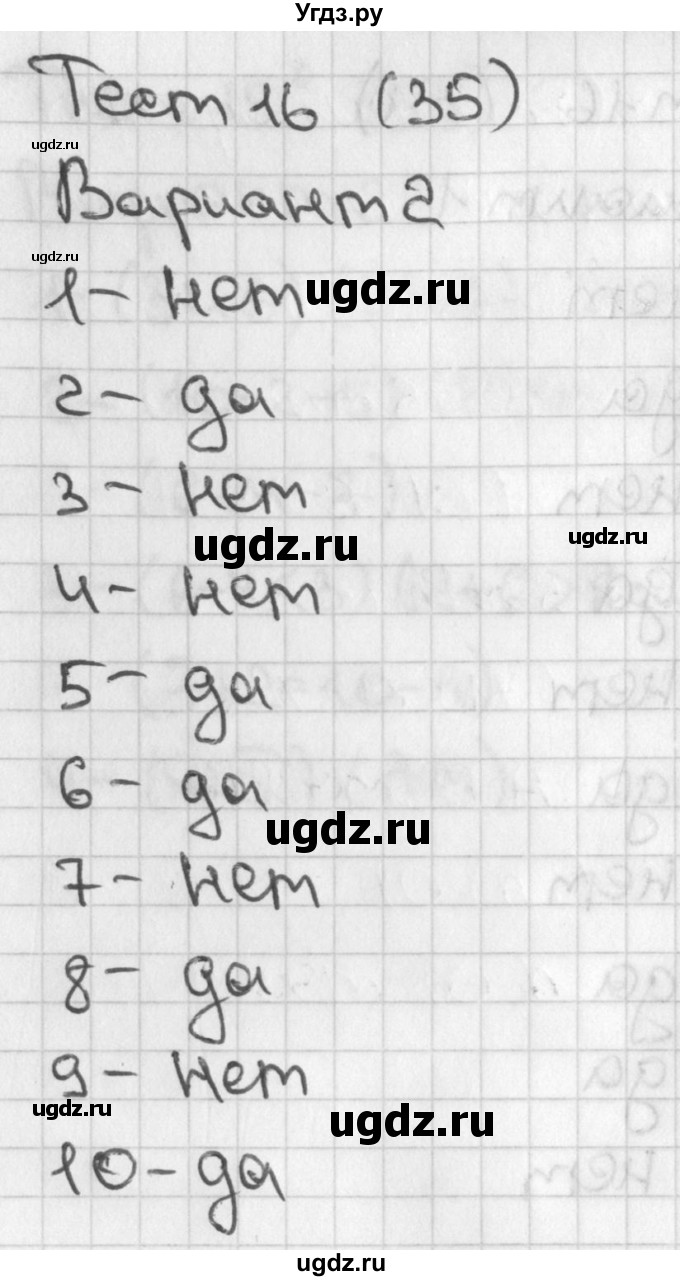 Угдз.ру
Тест 16 (35)
ugdz.ru
Вариант 2
ugdz.ru
1 - нет ugdz.ru
2 - да
3 - нет
ugdz.ru ugdz.ru
4 - нет
5 - да
6 - да
ugdz.ru
7 - нет
8 - да
9 - нет
ugdz.ru ugdz.ru
10 - да
ugdz.ru